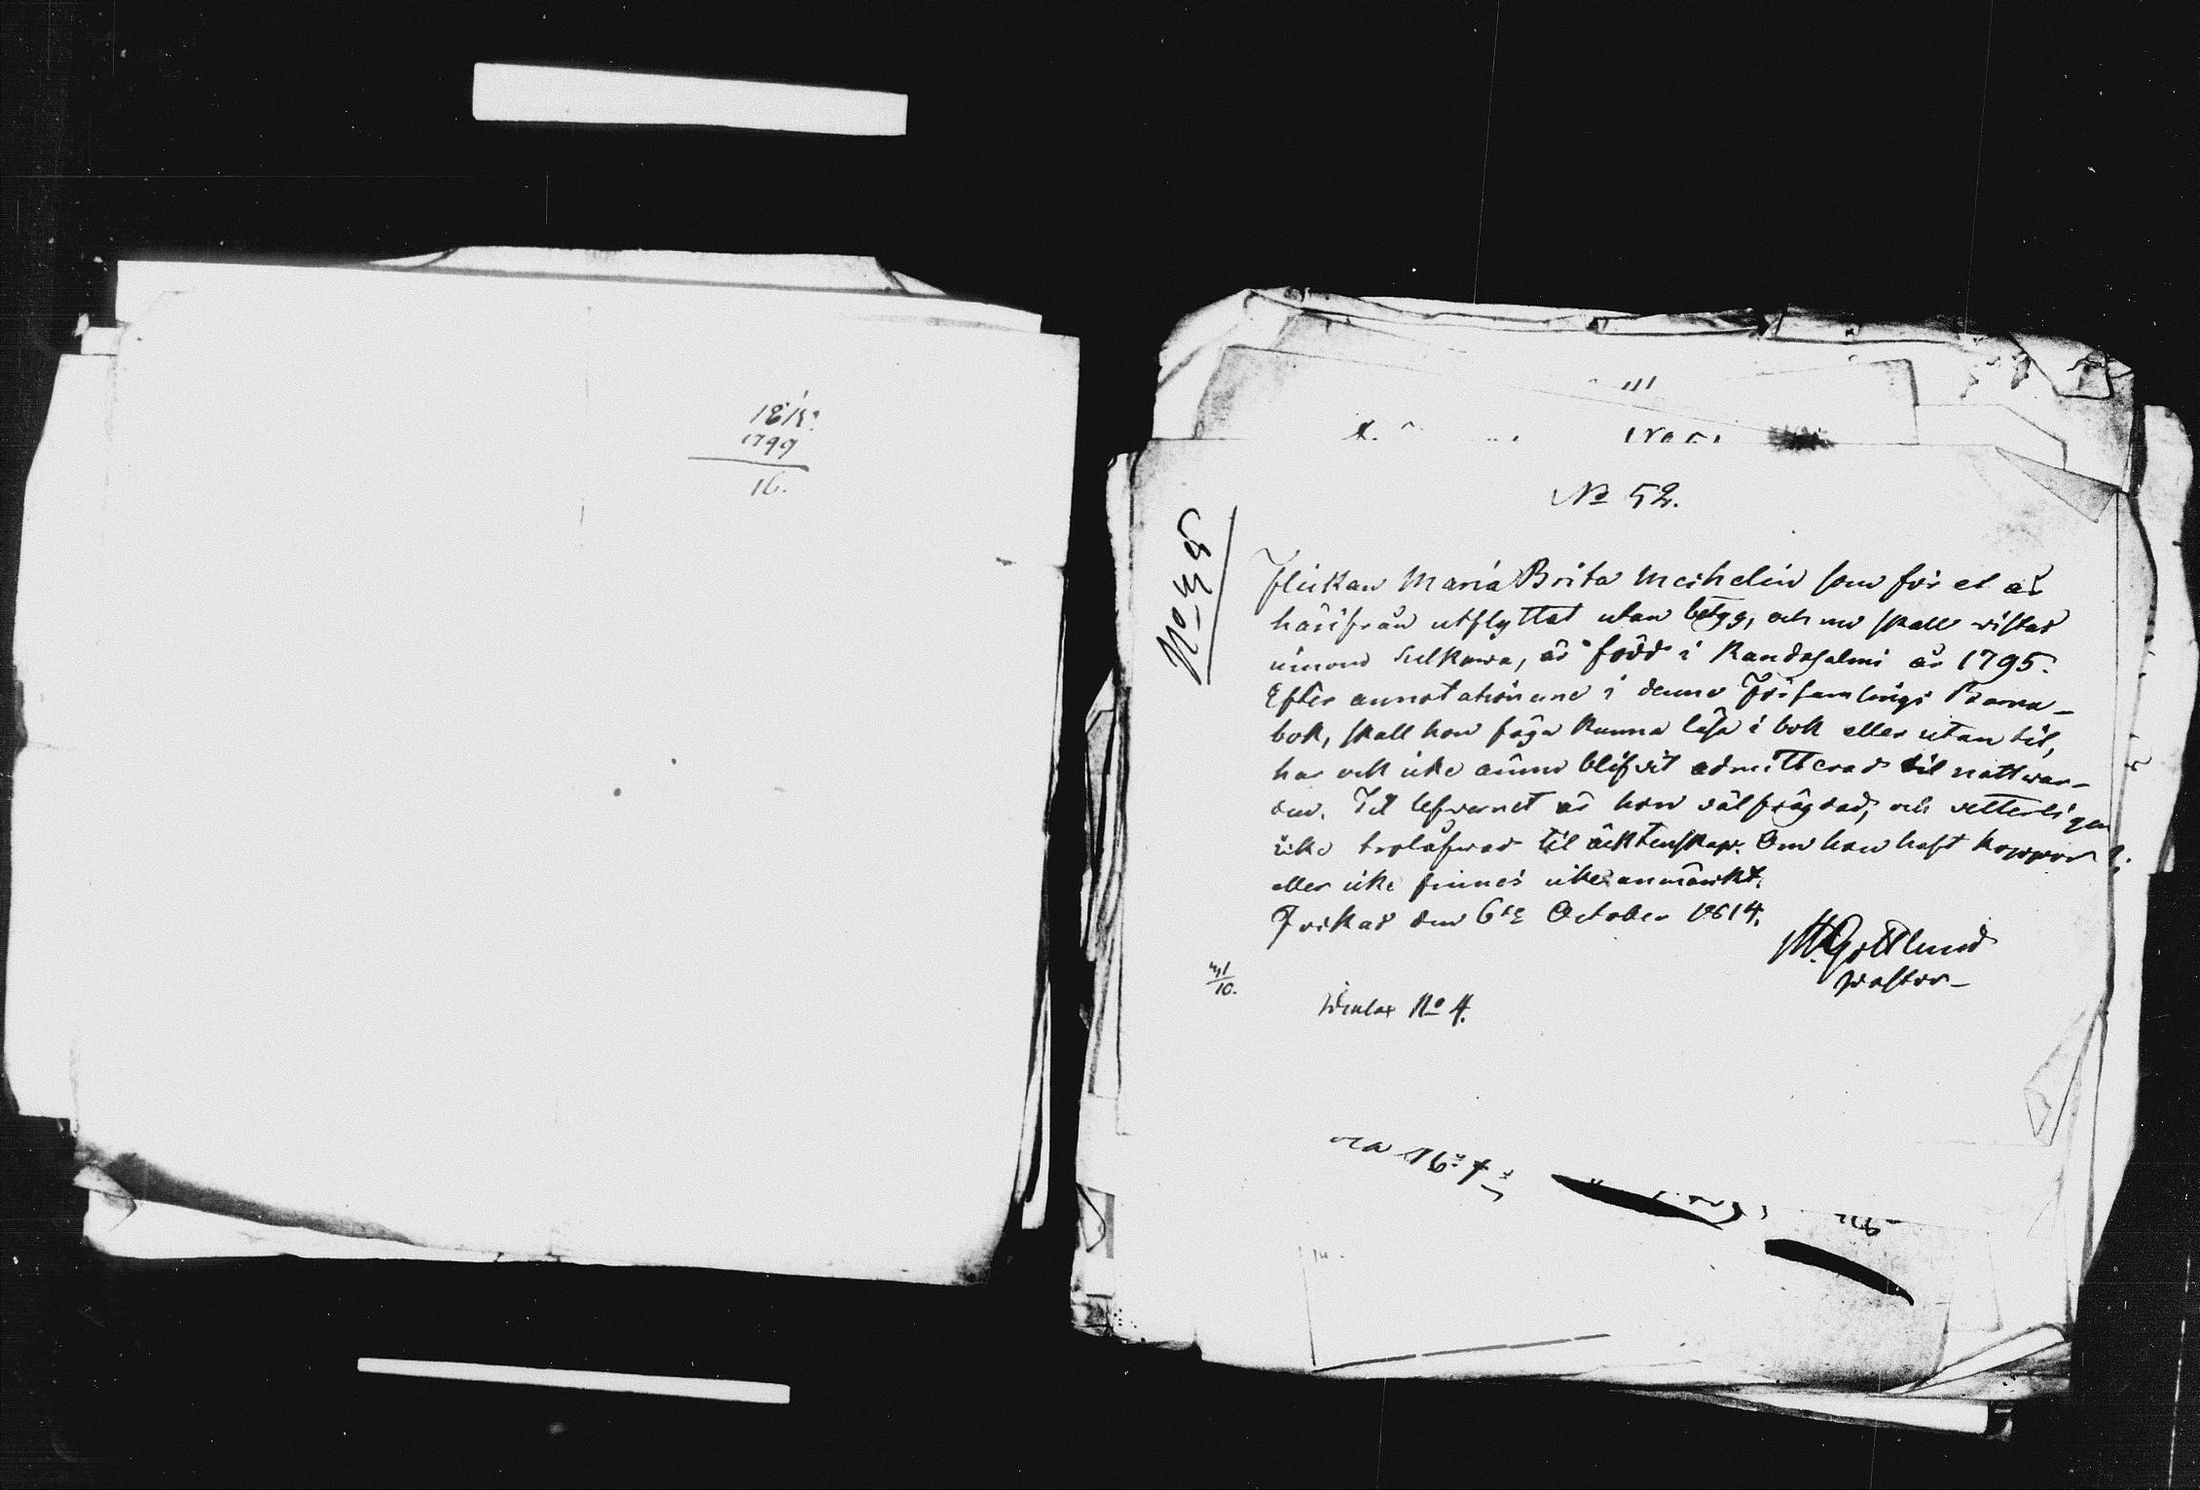 1815.
1799
16.
No 52.
Flickan Maria Brita Meihelin som för et år
härifrån utflyttat utan betyg, och nu skall vistas
innom Sulkawa, är född i Randasalmi år 1795.
Efter annotationerne i denne Församlings Barna-
bok, skall hon föga kunna läsa i bok eller utan til,
har och icke ännu blifvit admitterad til nattvar-
den. Til lefvernet är hon välfrägdad, och vetterligen
icke trolåfwad til äcktenskap. Om hon haft koppor
eller icke finnes icke anmärkt.
Jockas den 6te October 1814.
M. Gottlund
Pastor
/10.
No 4.